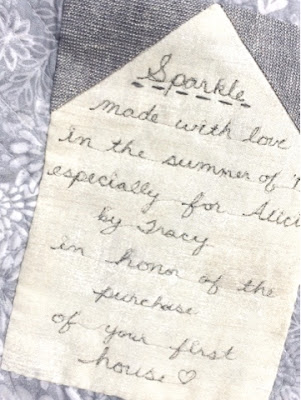 Sparkle
made with love
in the summer of
especially for
by Tracy
in honor of the
purchase
of your first
house ♡